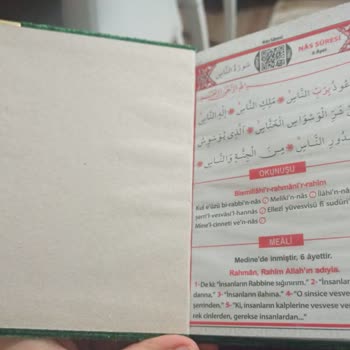 Nâs Sûresi
NÂS SÛRESİ
6 Âyet
سُورَةُ النَّاسِ
بِرَبِّ النَّاسِ مَلِكِ النَّاسِ إِلٰهِ النَّاسِ
شَرِّ الْوَسْوَاسِ الْخَنَّاسِ اَلَّذِي يُوَسْوِسُ
صُدُورِ النَّاسِ مِنَ الْجِنَّةِ وَالنَّاسِ
OKUNUŞU
Bismillâhi'r-rahmâni'r-rahîm
Kul e'ûzü bi-rabbi'n-nâs 1 Meliki'n-nâs 2 İlâhi'n-nâs
şerri'l-vesvâsi'l-hannâs 4 Ellezî yüvesvisü fî sudûri'
Mine'l-cinneti ve'n-nâs 6
MEÂLİ
Medine'de inmiştir, 6 âyettir.
Rahmân, Rahîm Allah'ın adıyla.
1- De ki: "İnsanların Rabbine sığınırım." 2- "İnsanlar
darına," 3- "İnsanların ilahına." 4- "O sinsice vesve
şerrinden." 5- "Ki, insanların kalplerine vesvese ver
rek cinlerden, gerekse insanlardan..."